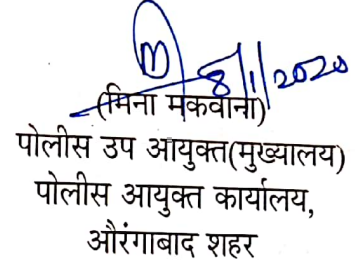 8/1/2020
(मिना मकवाना)
पोलीस उप आयुक्त(मुख्यालय)
पोलीस आयुक्त कार्यालय,
औरंगाबाद शहर